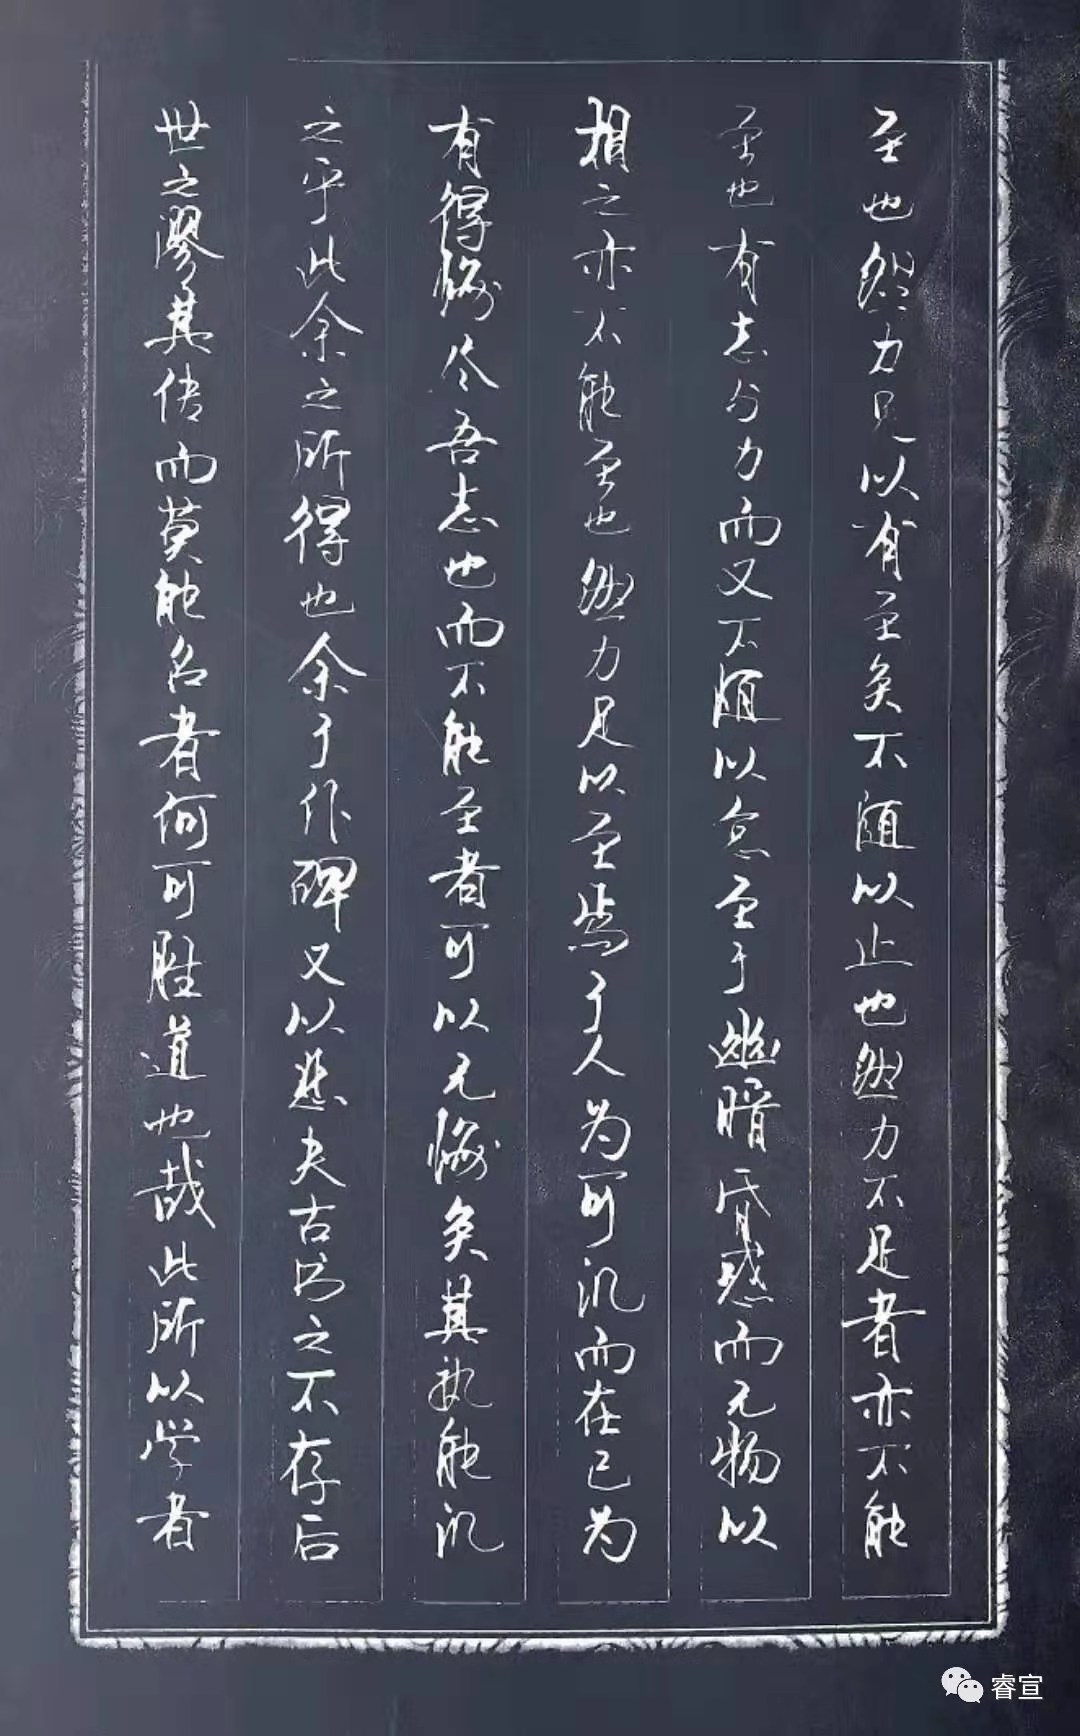 至也然力以有至矣不随以止也然力不足者亦不能
至也有志与力而又不随以怠至于幽暗昏惑而无物以
相之亦不能至也然力足以至焉于人为可讥而在己为
有得悔尽吾志也而不能至者可以无悔矣其孰能讥
之乎此余之所得也余于作碑又以悲夫古书之不存后
世之谬其传而莫能名者何可胜道也哉此所以学者
睿宣